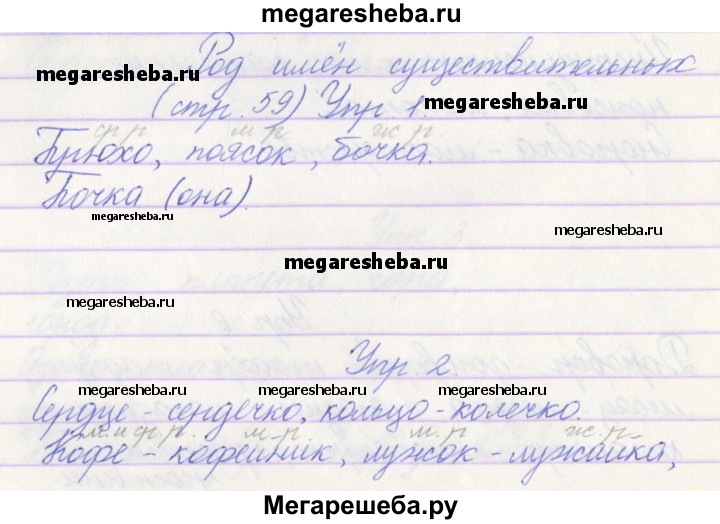 megaresheba.ru
Род имён существительных
megaresheba.ru
(стр. 59) Упр. 1.
megaresheba.ru
ср.р. м.р. ж.р.
Брюхо, поясок, бочка.
Бочка (она).
megaresheba.ru
megaresheba.ru
megaresheba.ru
megaresheba.ru
Упр. 2.
megaresheba.ru megaresheba.ru megaresheba.ru
Сердце - сердечко, кольцо - колечко.
м. и ср.р. м.р. м.р. ж.р.
Кофе - кофейник, лужок - лужайка,
Мегарешеба.ру